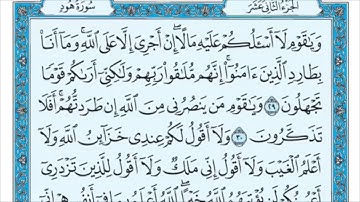 الجزء الثاني عشر سورة هود
وَيَٰقَوْمِ لَآ أَسْـَٔلُكُمْ عَلَيْهِ مَالًا ۖ إِنْ أَجْرِىَ إِلَّا عَلَى ٱللَّهِ ۚ وَمَآ أَنَا۠
بِطَارِدِ ٱلَّذِينَ ءَامَنُوٓا۟ ۚ إِنَّهُم مُّلَٰقُوا۟ رَبِّهِمْ وَلَٰكِنِّىٓ أَرَىٰكُمْ قَوْمًا
تَجْهَلُونَ ٢٩ وَيَٰقَوْمِ مَن يَنصُرُنِى مِنَ ٱللَّهِ إِن طَرَدتُّهُمْ ۚ أَفَلَا
تَذَكَّرُونَ ٣٠ وَلَآ أَقُولُ لَكُمْ عِندِى خَزَآئِنُ ٱللَّهِ وَلَآ
أَعْلَمُ ٱلْغَيْبَ وَلَآ أَقُولُ إِنِّى مَلَكٌ وَلَآ أَقُولُ لِلَّذِينَ تَزْدَرِىٓ
أَعْيُنُكُمْ لَن يُؤْتِيَهُمُ ٱللَّهُ خَيْرًا ۖ ٱللَّهُ أَعْلَمُ بِمَا فِىٓ أَنفُسِهِمْ ۖ إِنِّىٓ